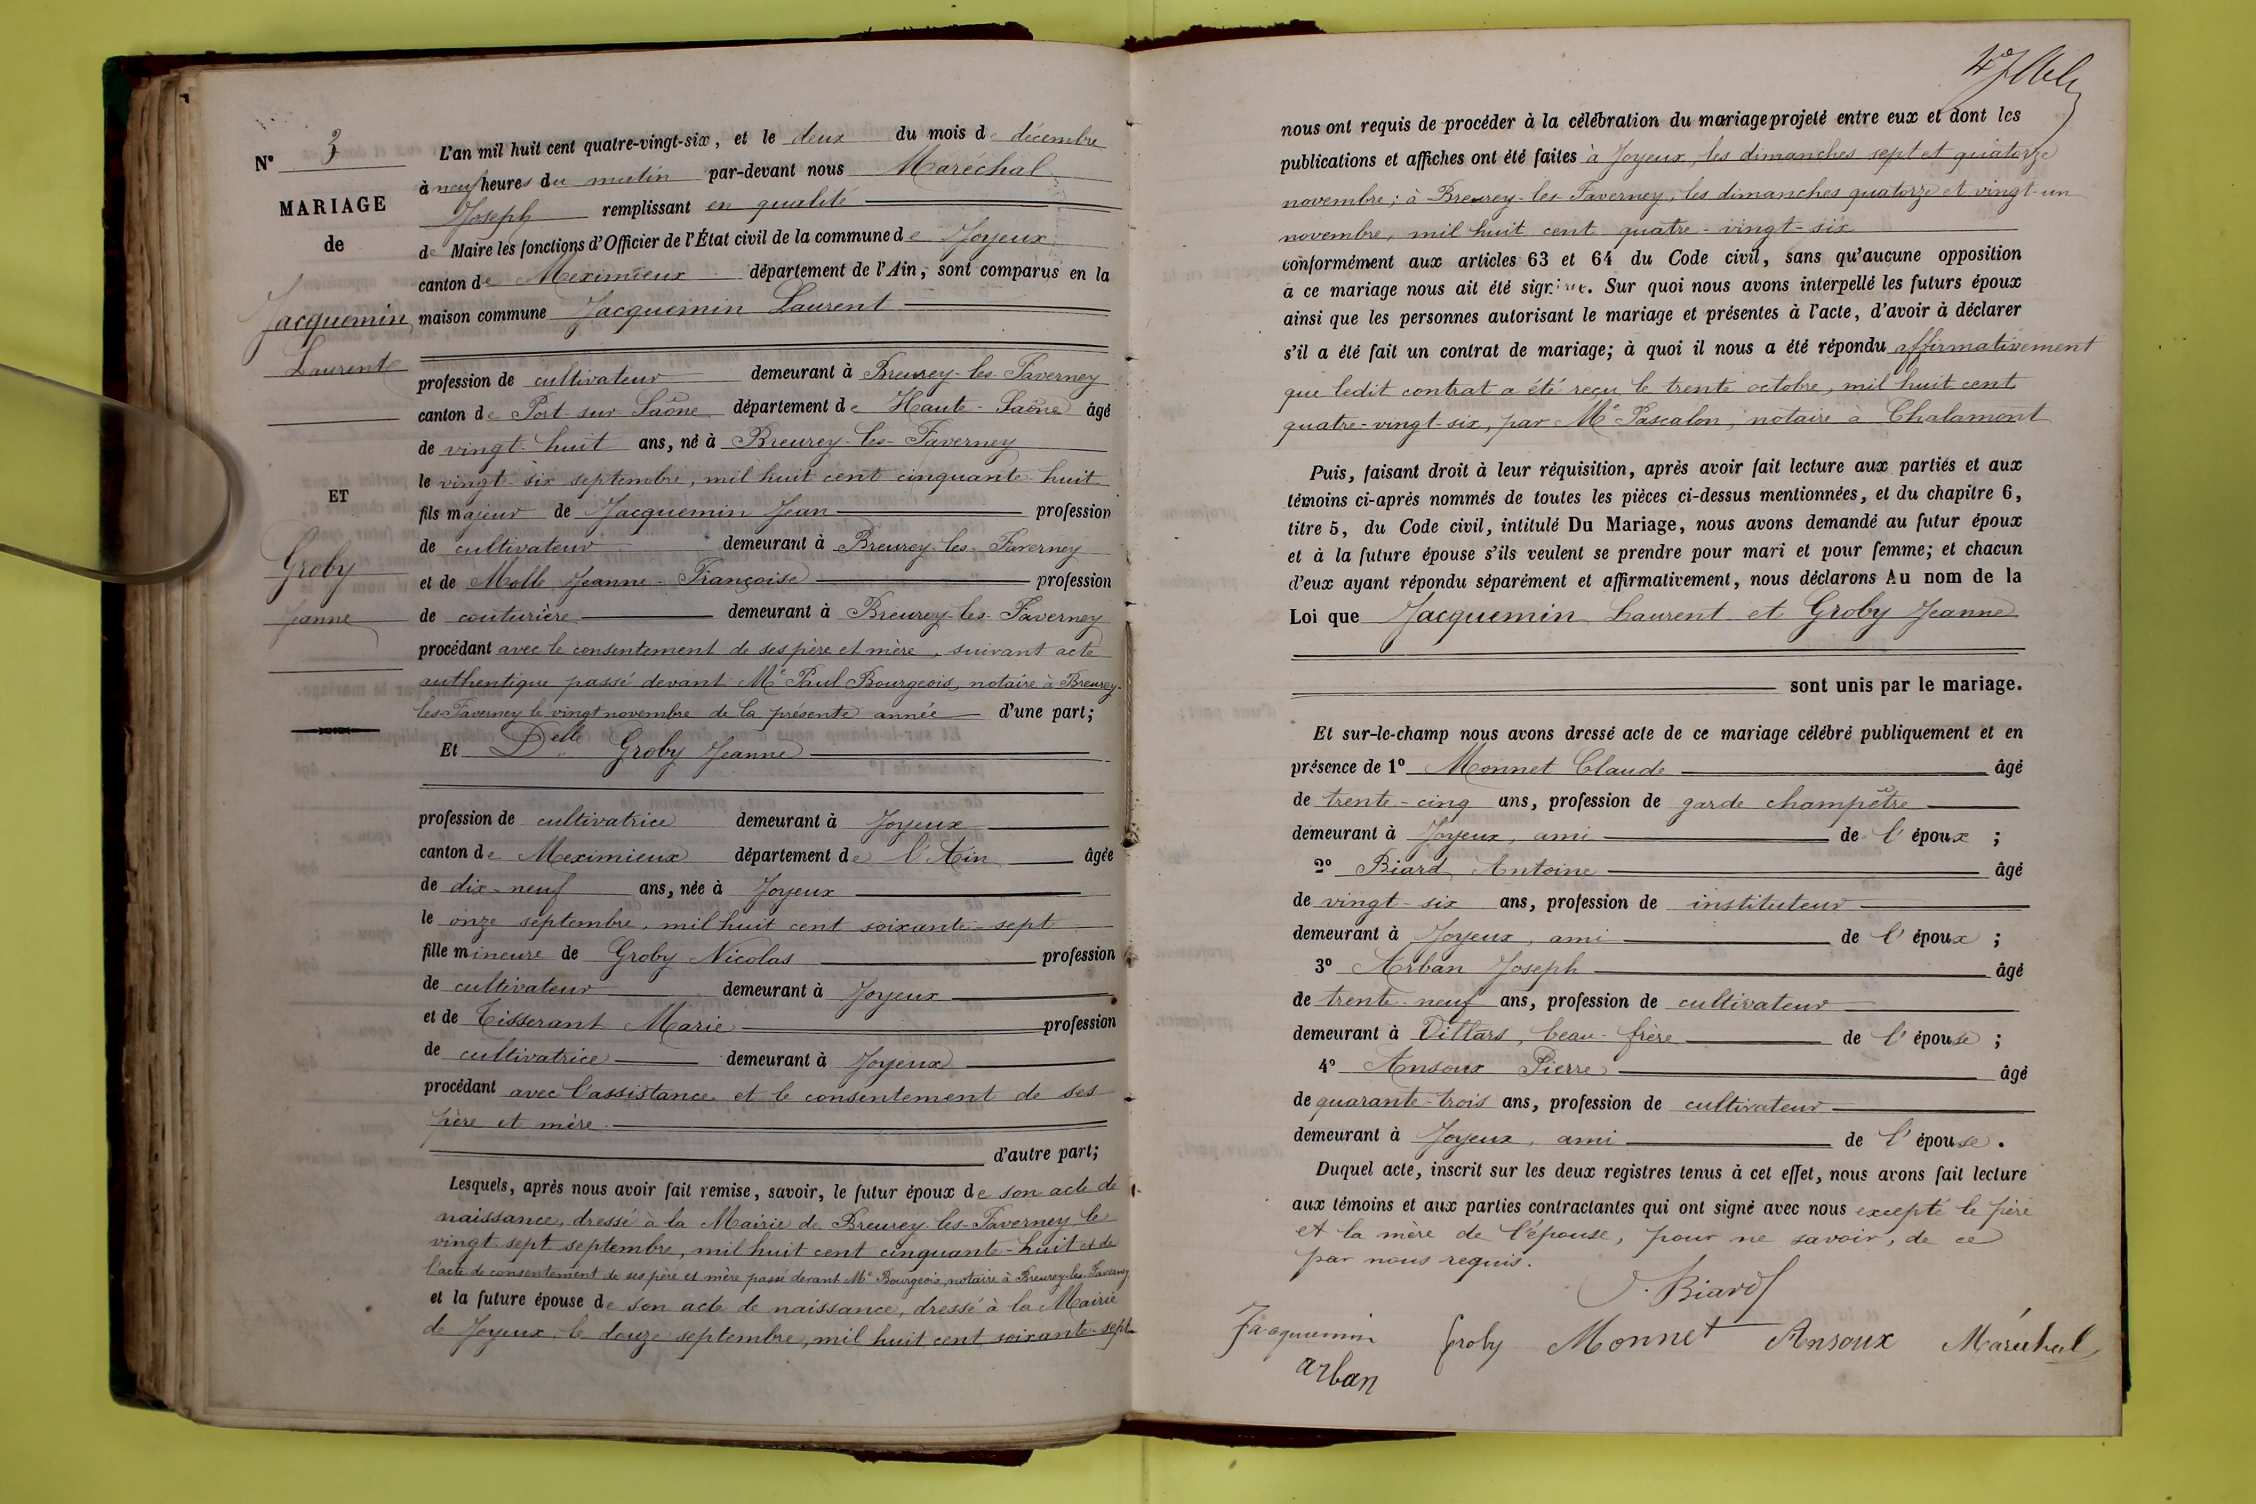 N° 3
MARIAGE
de
Jacquemin
Laurent
ET
Groby
Jeanne
L'an mil huit cent quatre-vingt-six, et le deux du mois de décembre
à neuf heures du matin par-devant nous Maréchal
Joseph remplissant en qualité
de Maire les fonctions d'Officier de l'État civil de la commune de Joyeux
canton de Meximieux département de l'Ain, sont comparus en la
maison commune Jacquemin Laurent
profession de cultivateur demeurant à Breurey-les-Faverney
canton de Port-sur-Saône département de Haute-Saône âgé
de vingt-huit ans, né à Breurey-les-Faverney
le vingt-six septembre, mil huit cent cinquante-huit
fils majeur de Jacquemin Jean profession
de cultivateur demeurant à Breurey-les-Faverney
et de Molle Jeanne-Françoise profession
de couturière demeurant à Breurey-les-Faverney
procédant avec le consentement de ses père et mère, suivant acte
authentique passé devant Me Paul Bourgeois, notaire à Breurey-
les-Faverney le vingt novembre de la présente année d'une part;
Et Delle Groby Jeanne
profession de cultivatrice demeurant à Joyeux
canton de Meximieux département de l'Ain âgée
de dix-neuf ans, née à Joyeux
le onze septembre, mil huit cent soixante-sept
fille mineure de Groby Nicolas profession
de cultivateur demeurant à Joyeux
et de Tisserant Marie profession
de cultivatrice demeurant à Joyeux
procédant avec l'assistance et le consentement de ses
père et mère.
d'autre part;
Lesquels, après nous avoir fait remise, savoir, le futur époux de son acte de
naissance, dressé à la Mairie de Breurey-les-Faverney, le
vingt-sept septembre, mil huit cent cinquante-huit et de
l'acte de consentement de ses père et mère passé devant Me Bourgeois, notaire à Breurey-les-Faverney
et la future épouse de son acte de naissance, dressé à la Mairie
de Joyeux, le douze septembre, mil huit cent soixante-sept
nous ont requis de procéder à la célébration du mariage projeté entre eux et dont les
publications et affiches ont été faites à Joyeux, les dimanches sept et quatorze
novembre; à Breurey-les-Faverney, les dimanches quatorze et vingt-un
novembre, mil huit cent quatre-vingt-six
conformément aux articles 63 et 64 du Code civil, sans qu'aucune opposition
à ce mariage nous ait été signifiée. Sur quoi nous avons interpellé les futurs époux
ainsi que les personnes autorisant le mariage et présentes à l'acte, d'avoir à déclarer
s'il a été fait un contrat de mariage; à quoi il nous a été répondu affirmativement
que ledit contrat a été reçu le trente octobre, mil huit cent
quatre-vingt-six, par Me Pascalon, notaire à Chalamont
Puis, faisant droit à leur réquisition, après avoir fait lecture aux parties et aux
témoins ci-après nommés de toutes les pièces ci-dessus mentionnées, et du chapitre 6,
titre 5, du Code civil, intitulé Du Mariage, nous avons demandé au futur époux
et à la future épouse s'ils veulent se prendre pour mari et pour femme; et chacun
d'eux ayant répondu séparément et affirmativement, nous déclarons Au nom de la
Loi que Jacquemin Laurent et Groby Jeanne
sont unis par le mariage.
Et sur-le-champ nous avons dressé acte de ce mariage célébré publiquement et en
présence de 1° Monnet Claude âgé
de trente-cinq ans, profession de garde champêtre
demeurant à Joyeux, ami de l'époux ;
2° Biard Antoine âgé
de vingt-six ans, profession de instituteur
demeurant à Joyeux, ami de l'époux ;
3° Arban Joseph âgé
de trente-neuf ans, profession de cultivateur
demeurant à Villars, beau-frère de l'épouse ;
4° Ansoux Pierre âgé
de quarante-trois ans, profession de cultivateur
demeurant à Joyeux, ami de l'épouse.
Duquel acte, inscrit sur les deux registres tenus à cet effet, nous avons fait lecture
aux témoins et aux parties contractantes qui ont signé avec nous excepté le père
et la mère de l'épouse, pour ne savoir, de ce
par nous requis.
Biard
Jacquemin Groby Monnet Ansoux Maréchal
arban